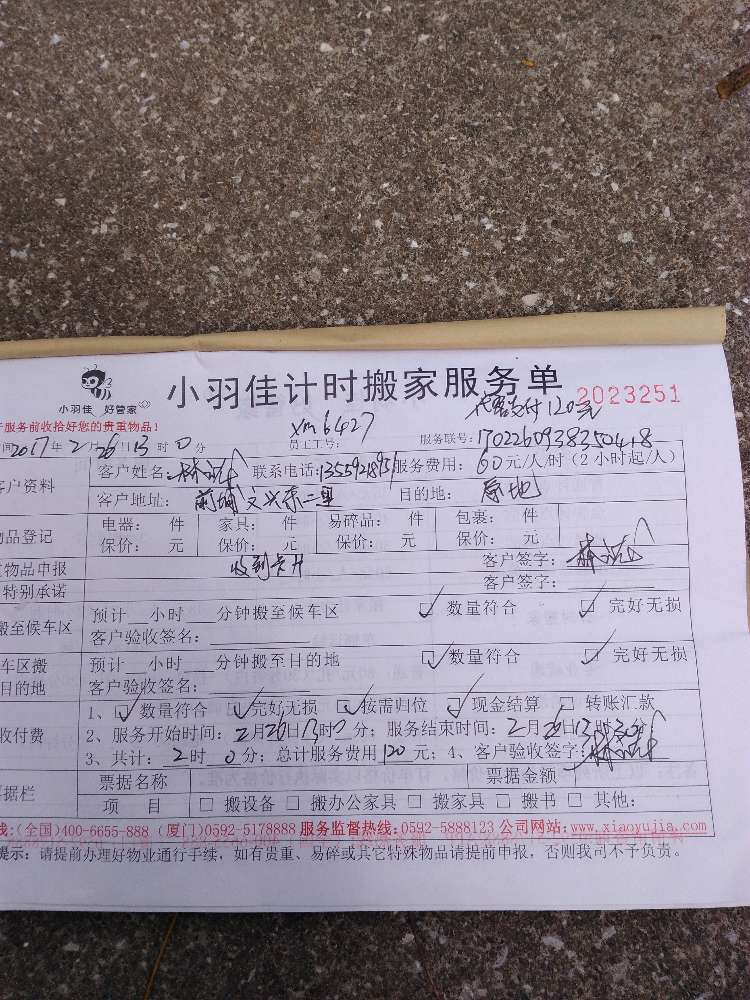 小羽佳计时搬家服务单 2023251
小羽佳 好管家
服务前收拾好您的贵重物品! xm6427 支付120元
间2017年2月26日13时0分 员工工号: 服务联号:1702260938350418
客户资料 客户姓名:林 联系电话:13559218951 服务费用:60元/人/时(2小时起/人)
客户地址:前埔文兴东二里 目的地:原地
物品登记 电器: 件 家具: 件 易碎品: 件 包裹: 件
保价: 元 保价: 元 保价: 元 保价: 元
物品申报 收到卡片 客户签字:林
特别承诺 客户签字:
搬至候车区 预计__小时__分钟搬至候车区 ☑数量符合 ☑完好无损
客户验收签名:
车区搬目的地 预计__小时__分钟搬至目的地 ☑数量符合 ☑完好无损
客户验收签名:
收付费 1、☑数量符合 ☑完好无损 ☑按需归位 ☑现金结算 □转账汇款
2、服务开始时间:2月26日13时0分;服务结束时间:2月26日13时30分;
3、共计:2时0分;总计服务费用120元;4、客户验收签字:林
据栏 票据名称 票据金额
项 目 □搬设备 □搬办公家具 □搬家具 □搬书 □其他:
线:(全国)400-6655-888 (厦门)0592-5178888 服务监督热线:0592-5888123 公司网站:www.xiaoyujia.com
提示:请提前办理好物业通行手续,如有贵重、易碎或其它特殊物品请提前申报,否则我司不予负责。